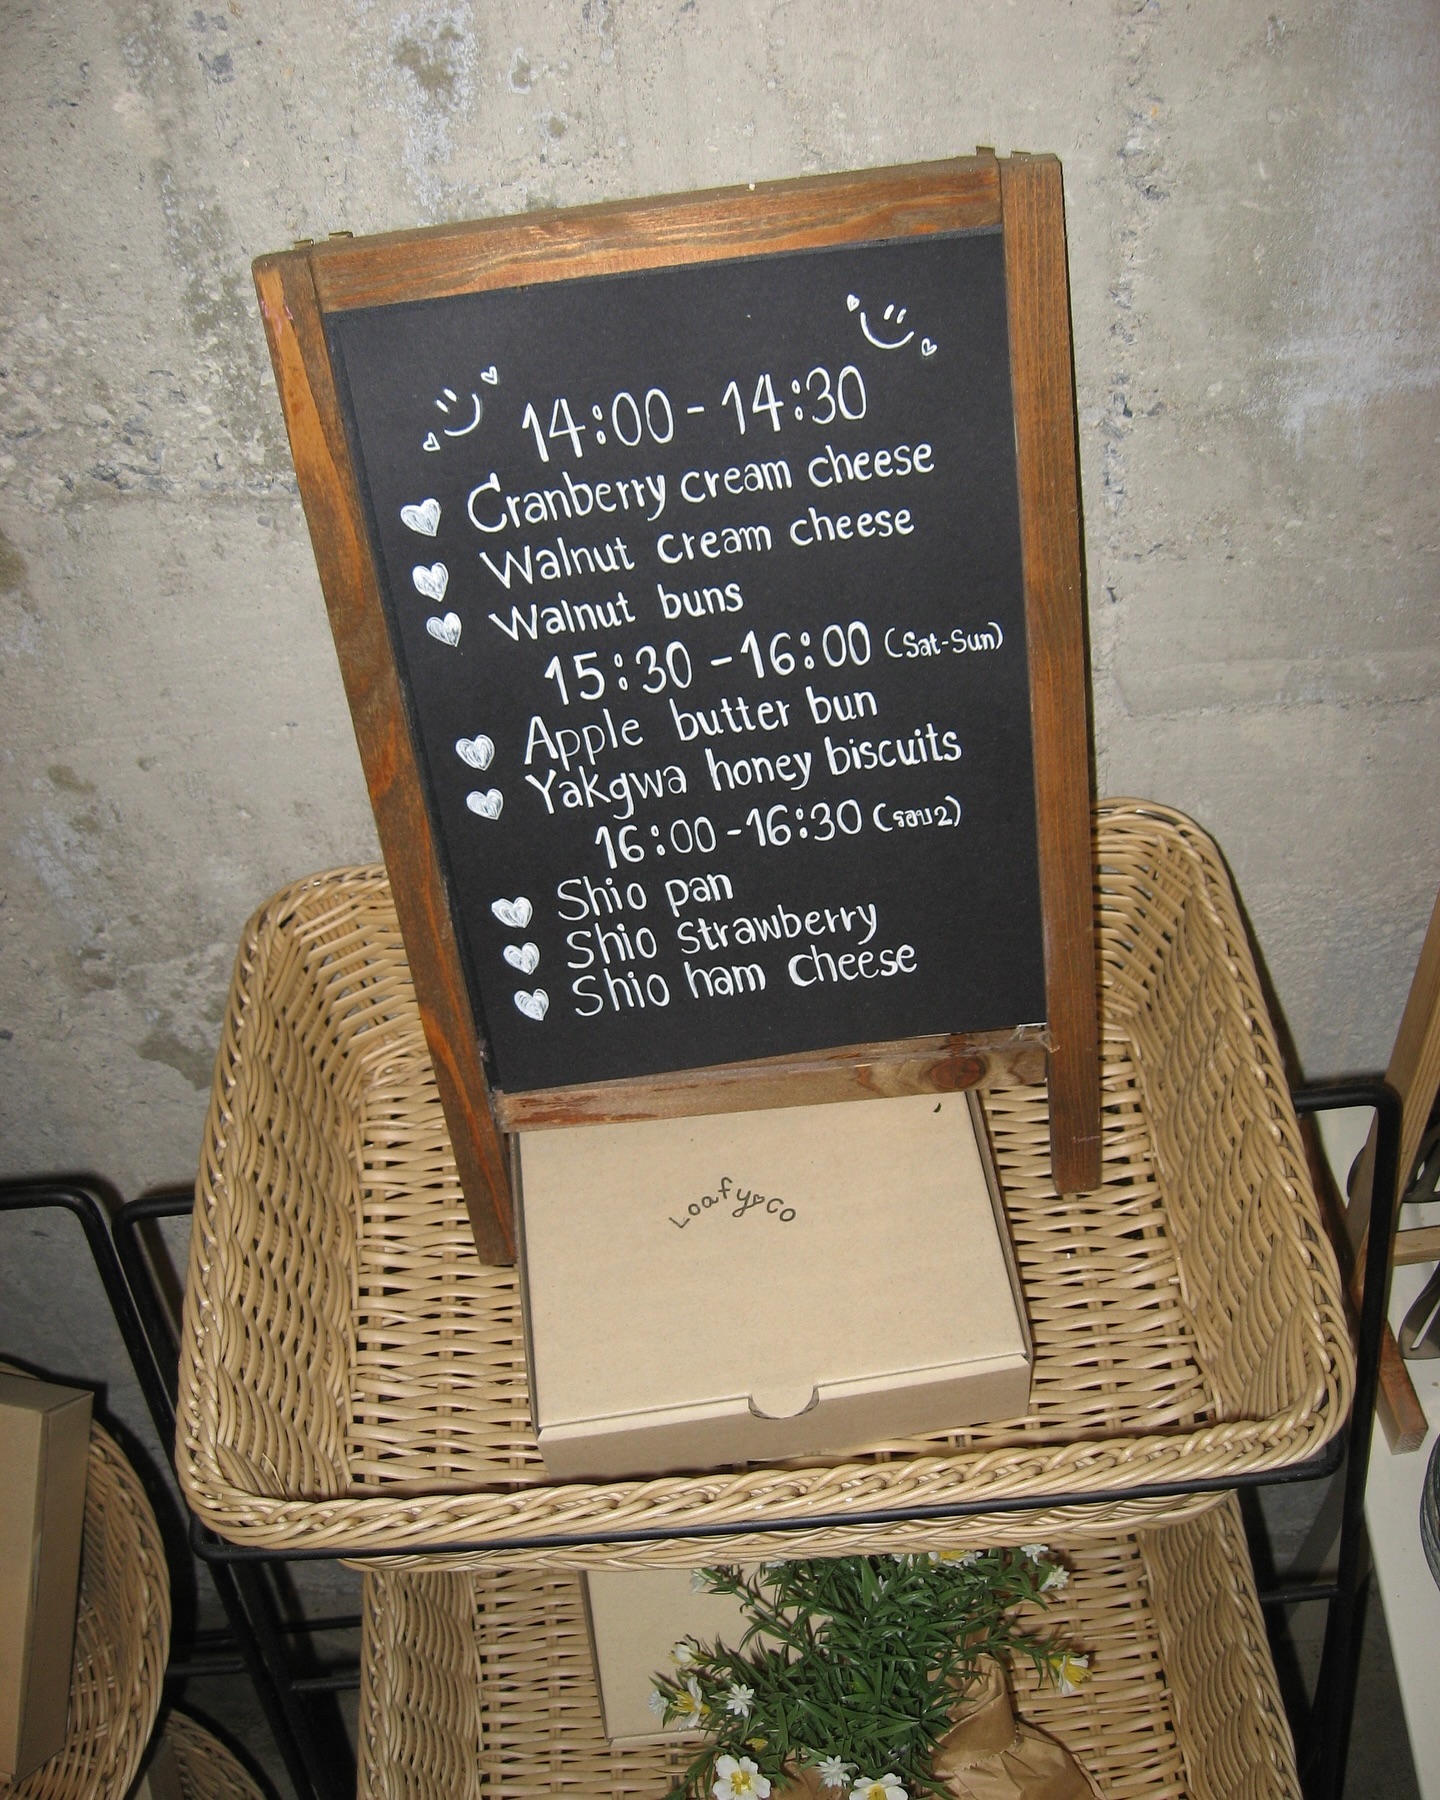 14:00-14:30
Cranberry cream cheese
Walnut cream cheese
Walnut buns
15:30-16:00 (Sat-Sun)
Apple butter bun
Yakgwa honey biscuits
16:00-16:30 (รอบ2)
Shio pan
Shio strawberry
Shio ham cheese
Loafy Co